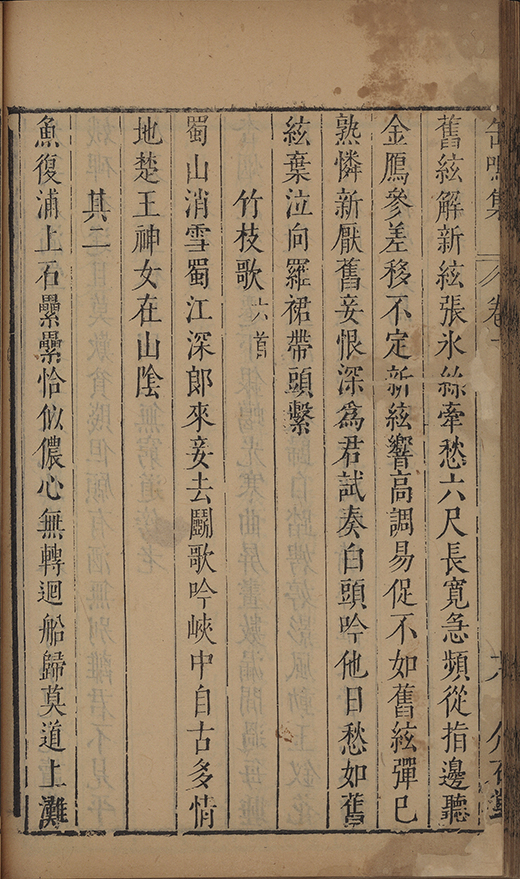 缶鳴集 卷
舊絃解新絃張氷絲牽愁六尺長寛急頻從指邊聽
金鴈參差移不定新絃響高調易促不如舊絃彈已
熟憐新厭舊妾恨深為君試奏白頭吟他日愁如舊
絃棄泣向羅裙帶頭繫
竹枝歌 六首
蜀山消雪蜀江深郎來妾去鬬歌吟峽中自古多情
地楚王神女在山陰
其二
魚復浦上石纍纍恰似儂心無轉迴船歸莫道上灘